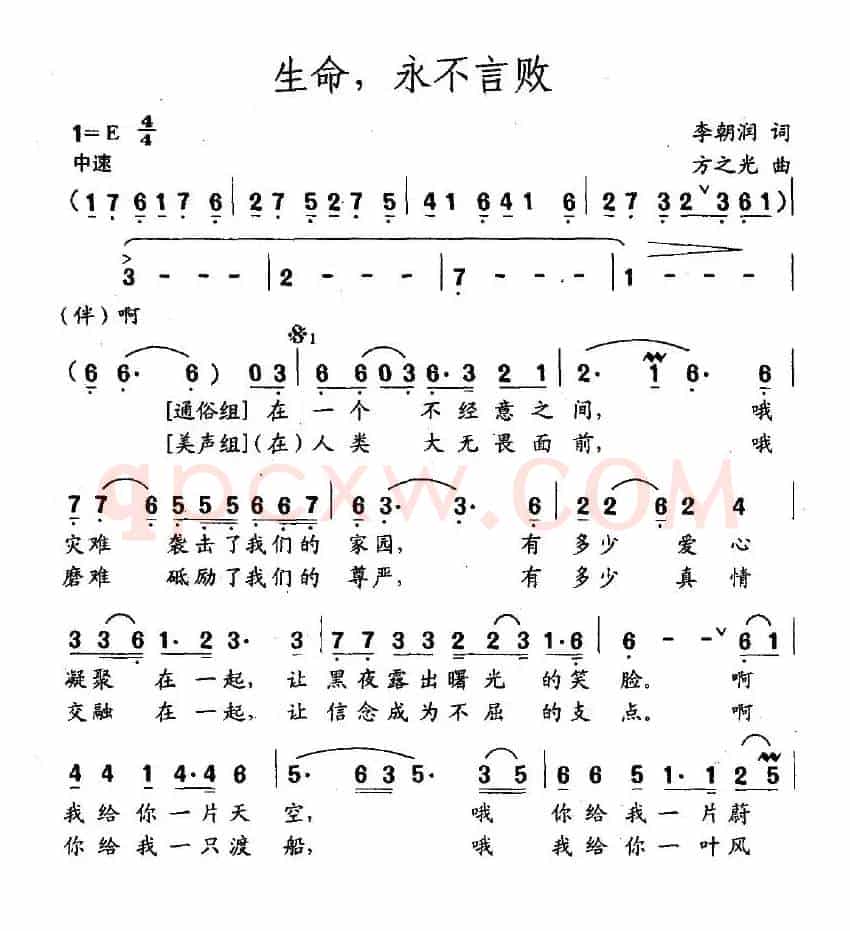 生命，永不言败
1=E 4/4 李朝润 词
中速 方之光 曲
(1 7 6 1 7 6 | 2 7 5 2 7 5 | 4 1 6 4 1 6 | 2 7 3 2 ∨ 3 6 1)|
> 3 - - - | 2 - - - | 7 - - - | 1 - - - |
(伴)啊
𝄋1
(6 6· 6) 0 3 | 6 6 0 3 6· 3 2 1 | 2· 1 6· 6 |
[通俗组]在 一个 不经意之间, 哦
[美声组](在)人类 大无畏面前, 哦
qpcxw.com
7 7 6 5 5 5 6 6 7 | 6 3· 3· 6 | 2 2 6 2 4 |
灾难 袭击了我们的 家园, 有 多少 爱 心
磨难 砥励了我们的 尊严, 有 多少 真 情
3 3 6 1· 2 3· 3 | 7 7 3 3 2 2 3 1· 6 | 6 - - ∨ 6 1 |
凝聚 在一起, 让 黑夜露出曙光 的笑 脸。 啊
交融 在一起, 让 信念成为不屈 的支 点。 啊
4 4 1 4· 4 6 | 5· 6 3 5· 3 5 | 6 6 5 1· 1 2 5 |
我给你一片天 空, 哦 你给我一片蔚
你给我一只渡 船, 哦 我给你一叶风